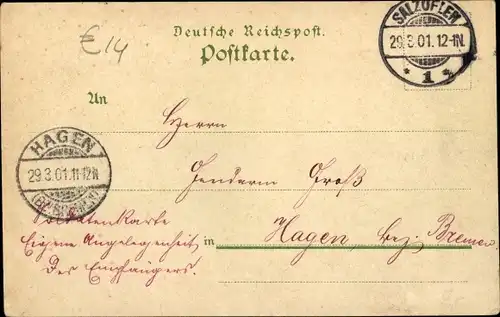 €14
Deutsche Reichspost.
Postkarte.
SALZUFLEN
29.3.01.12-1N.
* 1 *
An
Herrn
Gendarm Groß
HAGEN
29.3.01.11-12N.
in Hagen, bez. Bremen
Soldatenkarte
Eigene Angelegenheit
Des Empfängers!